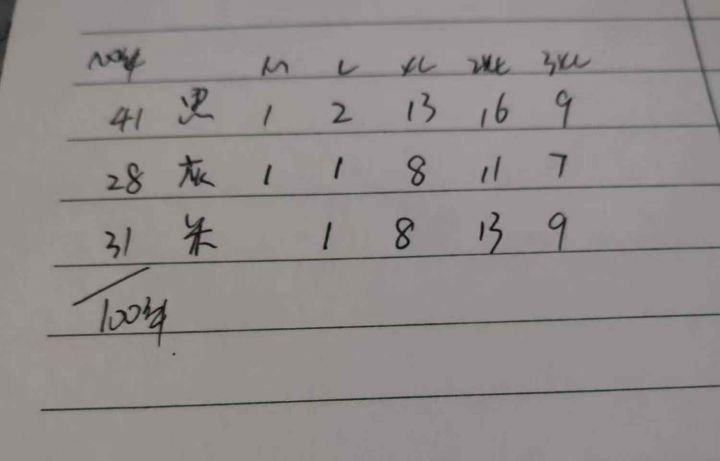 M L XL 2XL 3XL
41 黑 1 2 13 16 9
28 灰 1 1 8 11 7
31 米 1 8 13 9
100件